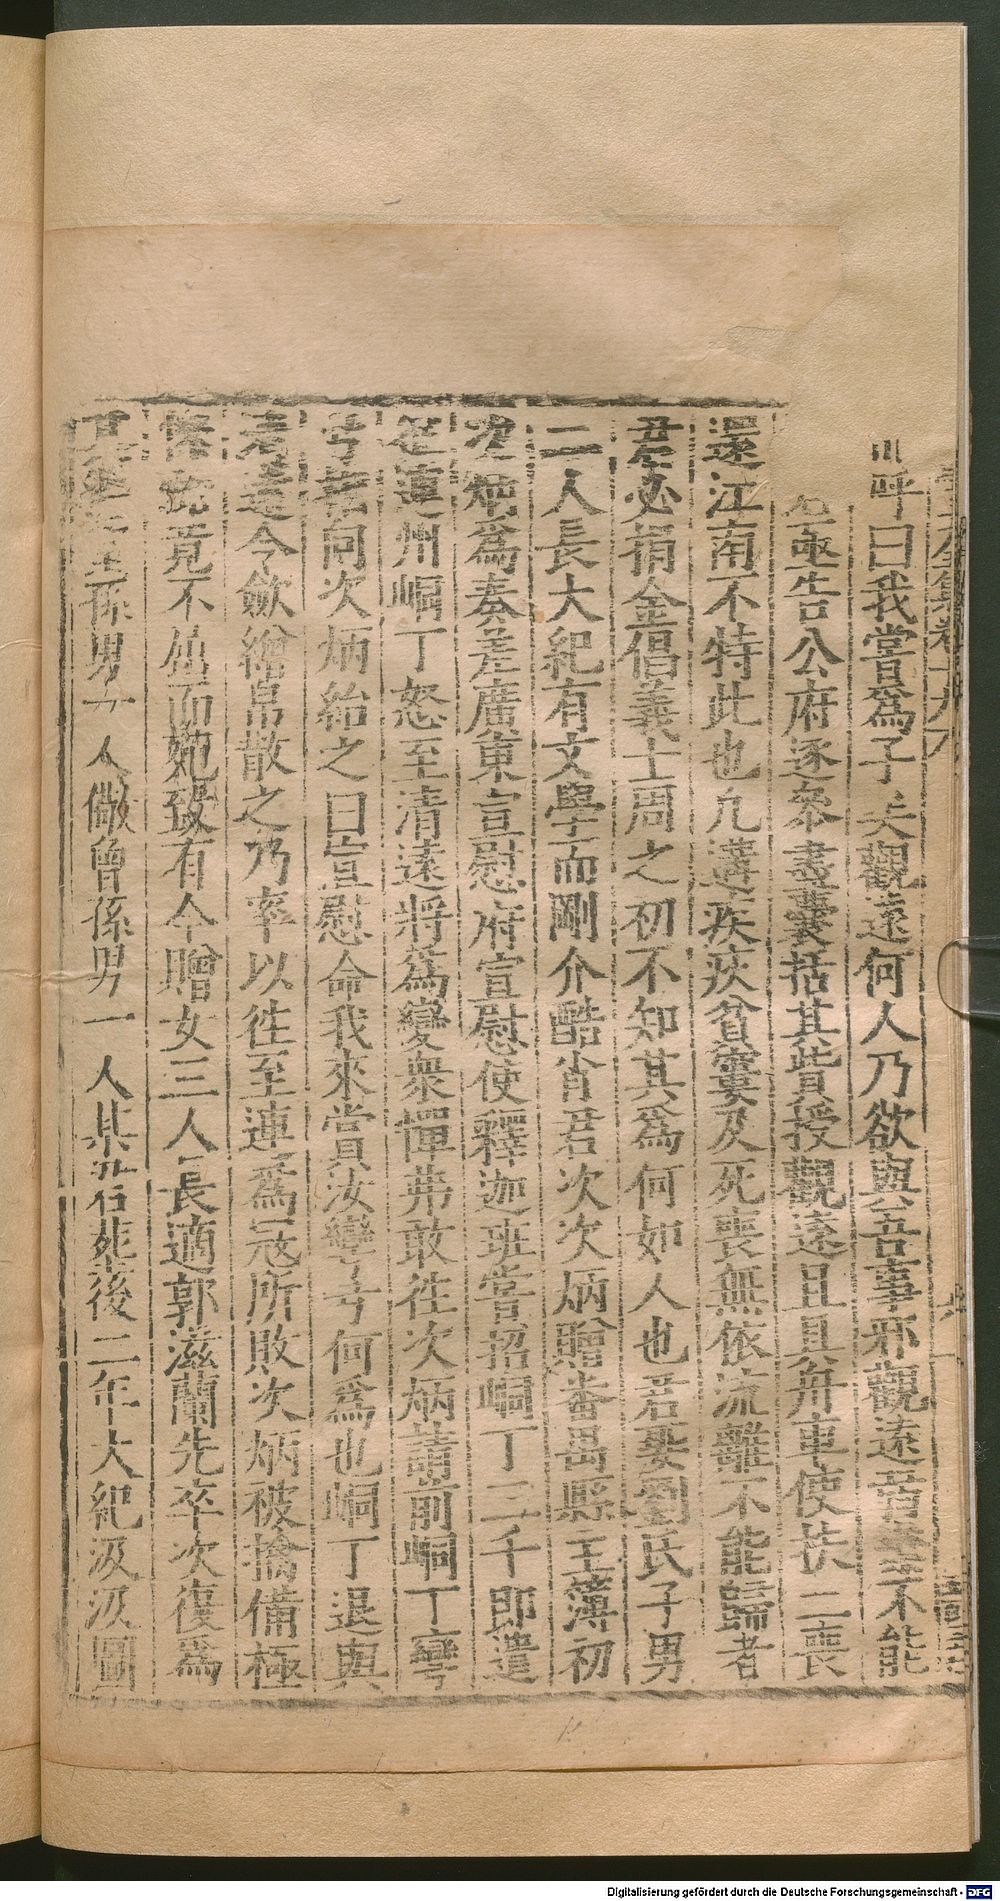 呼曰我嘗爲子夫觀遠何人乃欲與吾事邪觀遠不能
亟告公府逐叅盡囊括其貲授觀遠且具舟車使扶二喪
還江南不特此也凢遘疾疢貧窶及死喪無依流離不能歸者
君必捐金倡義士周之初不知其爲何如人也君娶劉氏子男
二人長大紀有文學而剛介酷肖君次次炳贈番禺縣主簿初
次炳爲奏差廣東宣慰府宣慰使釋迦班嘗招峒丁三千即遣
連州峒丁怒至清遠將爲變衆憚弗敢徃次炳請前峒丁彎
弓向次炳紿之曰宣慰命我來賞汝彎弓何爲也峒丁退與
遠令斂繒帛散之乃率以徃至連爲冦所敗次炳被擒備極
竟不屈而死致有今贈女三人長適郭滋蘭先卒次復爲
孫男人儆曾孫男一人某君葬後二年大紀汲汲圖
Digitalisierung gefördert durch die Deutsche Forschungsgemeinschaft - DFG